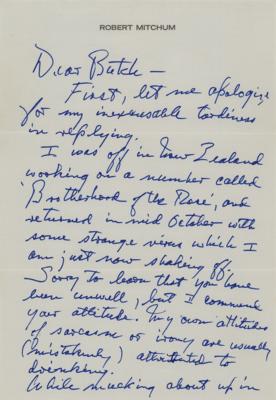 ROBERT MITCHUM
Dear Butch —
First, let me apologize
for my inexcusable tardiness
in replying.
I was off in New Zealand
working on a number called
'Brotherhood of the Rose', and
returned in mid October with
some strange virus which I
am just now shaking off.
Sorry to learn that you have
been unwell, but I commend
your attitude. My own attitudes
of sarcasm or irony are usually
(mistakenly) attributed to
drinking.
While mucking about up in